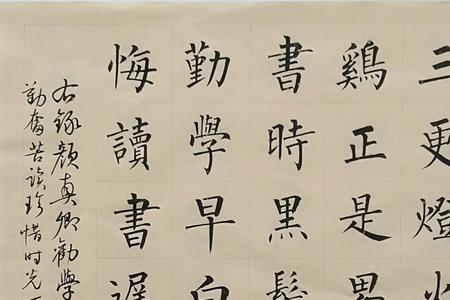 三更燈火
鷄正是男
書時黑髮
勤學早白
悔讀書遲
右録顔真卿勸學
勤奮苦读珍惜时光